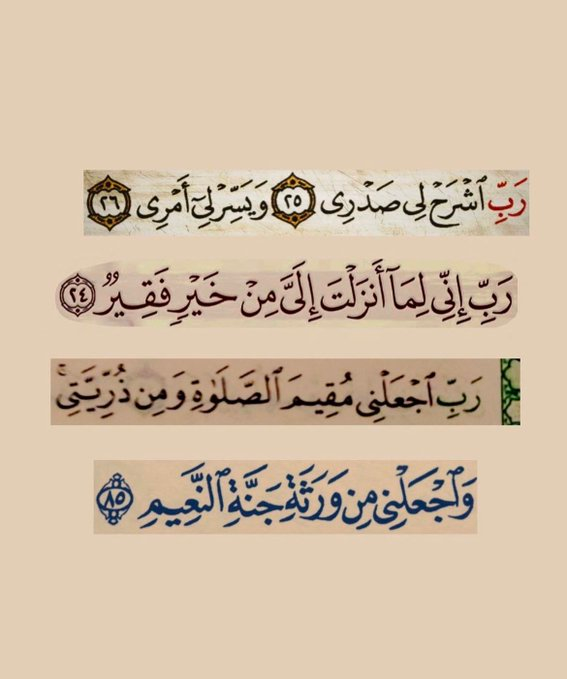 رَبِّ ٱشْرَحْ لِى صَدْرِى ٢٥ وَيَسِّرْ لِىٓ أَمْرِى ٢٦
رَبِّ إِنِّى لِمَآ أَنزَلْتَ إِلَىَّ مِنْ خَيْرٍ فَقِيرٌ ٢٤
رَبِّ ٱجْعَلْنِى مُقِيمَ ٱلصَّلَوٰةِ وَمِن ذُرِّيَّتِى ۚ
وَٱجْعَلْنِى مِن وَرَثَةِ جَنَّةِ ٱلنَّعِيمِ ٨٥